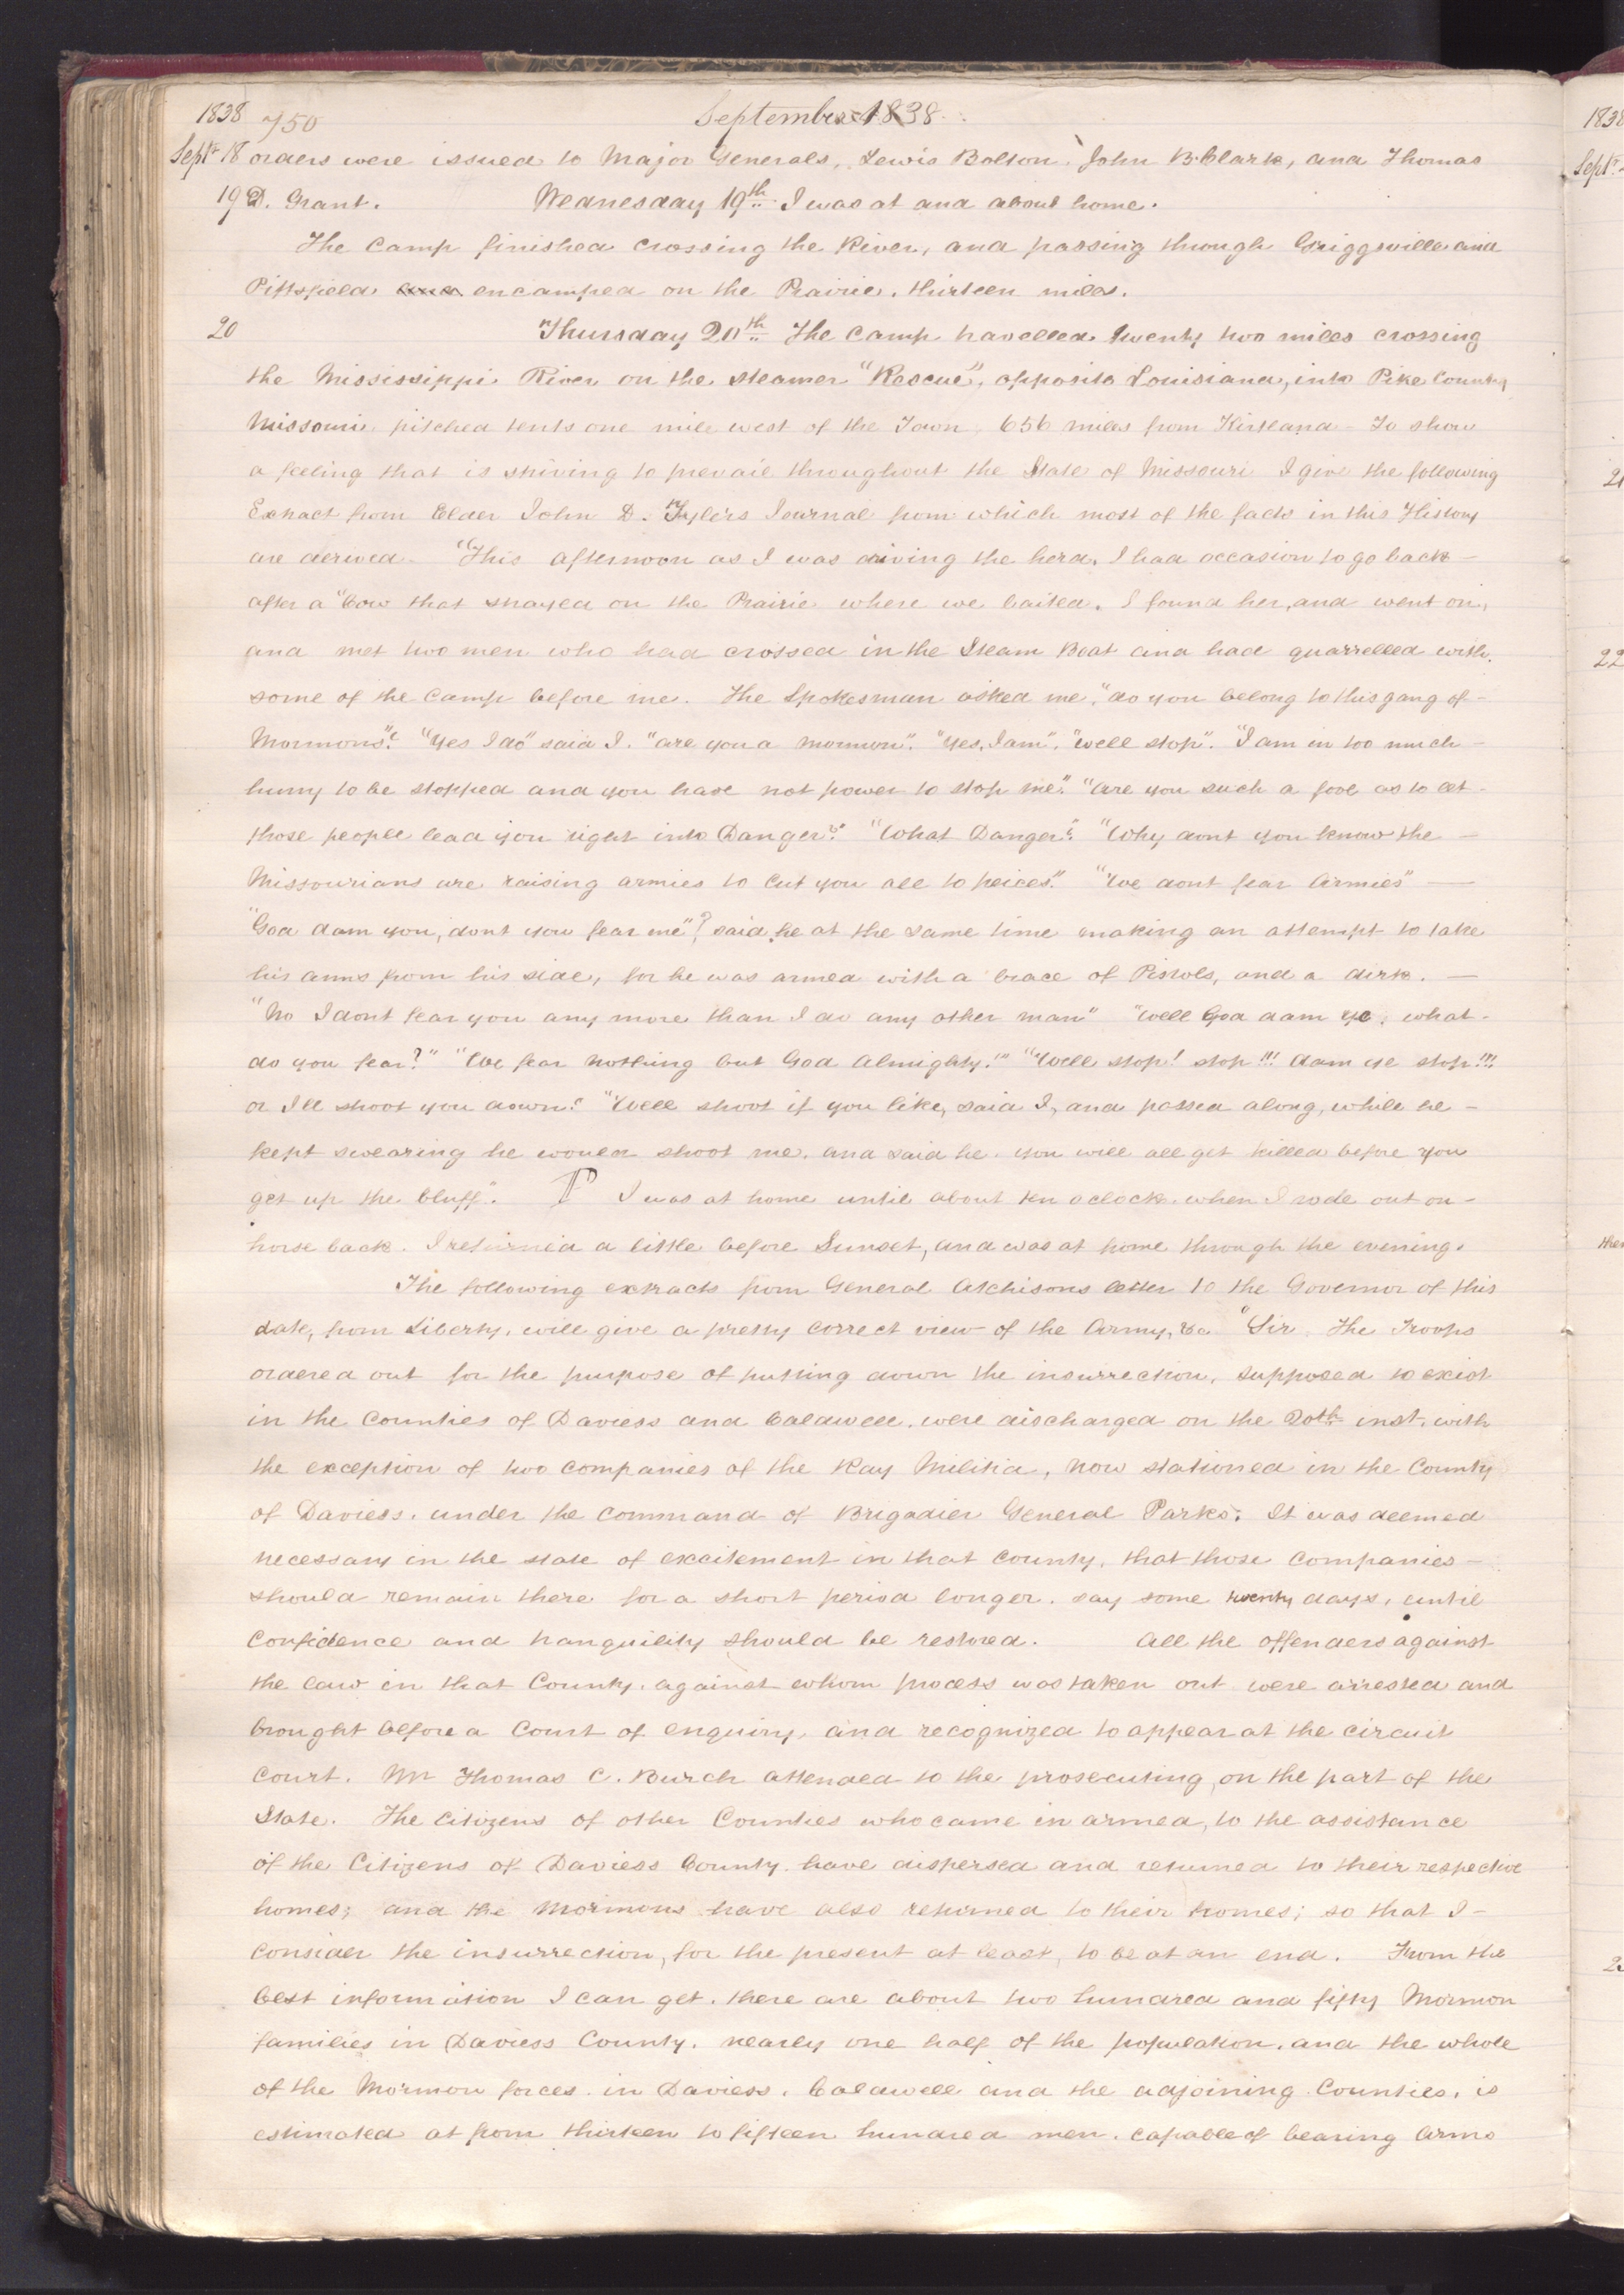 1838 750 September 1838.
Sept. 18 orders were issued to Major Generals, Lewis Bolton, John B. Clark, and Thomas
19 D. Grant. Wednesday 19th I was at and about home.
The Camp finished crossing the River, and passing through Griggsville and
Pittsfield and encamped on the Prairie, thirteen miles.
20 Thursday 20th The Camp travelled twenty two miles crossing
the Mississippi River on the steamer "Rescue", opposite Louisiana, into Pike County
Missouri, pitched tents one mile west of the Town, 656 miles from Kirtland - To show
a feeling that is striving to prevail throughout the State of Missouri I give the following
Extract from Elder John D. Tyler's Journal from which most of the facts in this History
are derived. "This afternoon as I was driving the herd, I had occasion to go back -
after a Cow that strayed on the Prairie where we baited. I found her, and went on,
and met two men who had crossed in the Steam Boat and had quarrelled with
some of the Camp before me. The Spokesman asked me, "do you belong to this gang of -
Mormons"? "Yes I do" said I. "are you a mormon". "Yes, I am". "well stop". "I am in too much -
hurry to be stopped and you have not power to stop me." "are you such a fool as to let -
those people lead you right into Danger?" "What Danger"? "Why dont you know the -
Missourians are raising armies to cut you all to peices." "We dont fear Armies" -
"God dam you, dont you fear me"? said he at the same time making an attempt to take
his arms from his side, for he was armed with a brace of Pistols, and a dirk. -
"No I dont fear you any more than I do any other man" "Well God dam ye, what -
do you fear?" "We fear nothing but God Almighty." "Well stop! stop!!! dam ye stop!!!
or Ill shoot you down." "Well shoot if you like, said I, and passed along, while he -
kept swearing he would shoot me, and said he, you will all get killed before you
get up the bluff." ¶ I was at home until about ten oclock, when I rode out on -
horse back. I returned a little before Sunset, and was at home through the evening.
The following extracts from General Atchisons letter to the Governor of this
date, from Liberty, will give a pretty correct view of the Army, &c "Sir. The Troops
ordered out for the purpose of putting down the insurrection, supposed to exist
in the Counties of Daviess and Caldwell, were discharged on the 20th inst. with
the exception of two companies of the Ray Militia, now stationed in the County
of Daviess, under the command of Brigadier General Parks. It was deemed
necessary in the state of excitement in that county, that those companies -
should remain there for a short period longer, say some twenty days, until
confidence and tranquility should be restored. All the offenders against
the law in that County, against whom process was taken out were arrested and
brought before a Court of enquiry, and recognized to appear at the circuit
Court. Mr Thomas C. Burch attended to the prosecuting, on the part of the
State. The Citizens of other Counties who came in armed, to the assistance
of the Citizens of Daviess County, have dispersed and returned to their respective
homes; and the Mormons have also returned to their homes; so that I -
consider the insurrection, for the present at least, to be at an end. From the
best information I can get, there are about two hundred and fifty Mormon
families in Daviess County, nearly one half of the population, and the whole
of the Mormon forces in Daviess, Caldwell and the adjoining Counties, is
estimated at from thirteen to fifteen hundred men, capable of bearing Arms